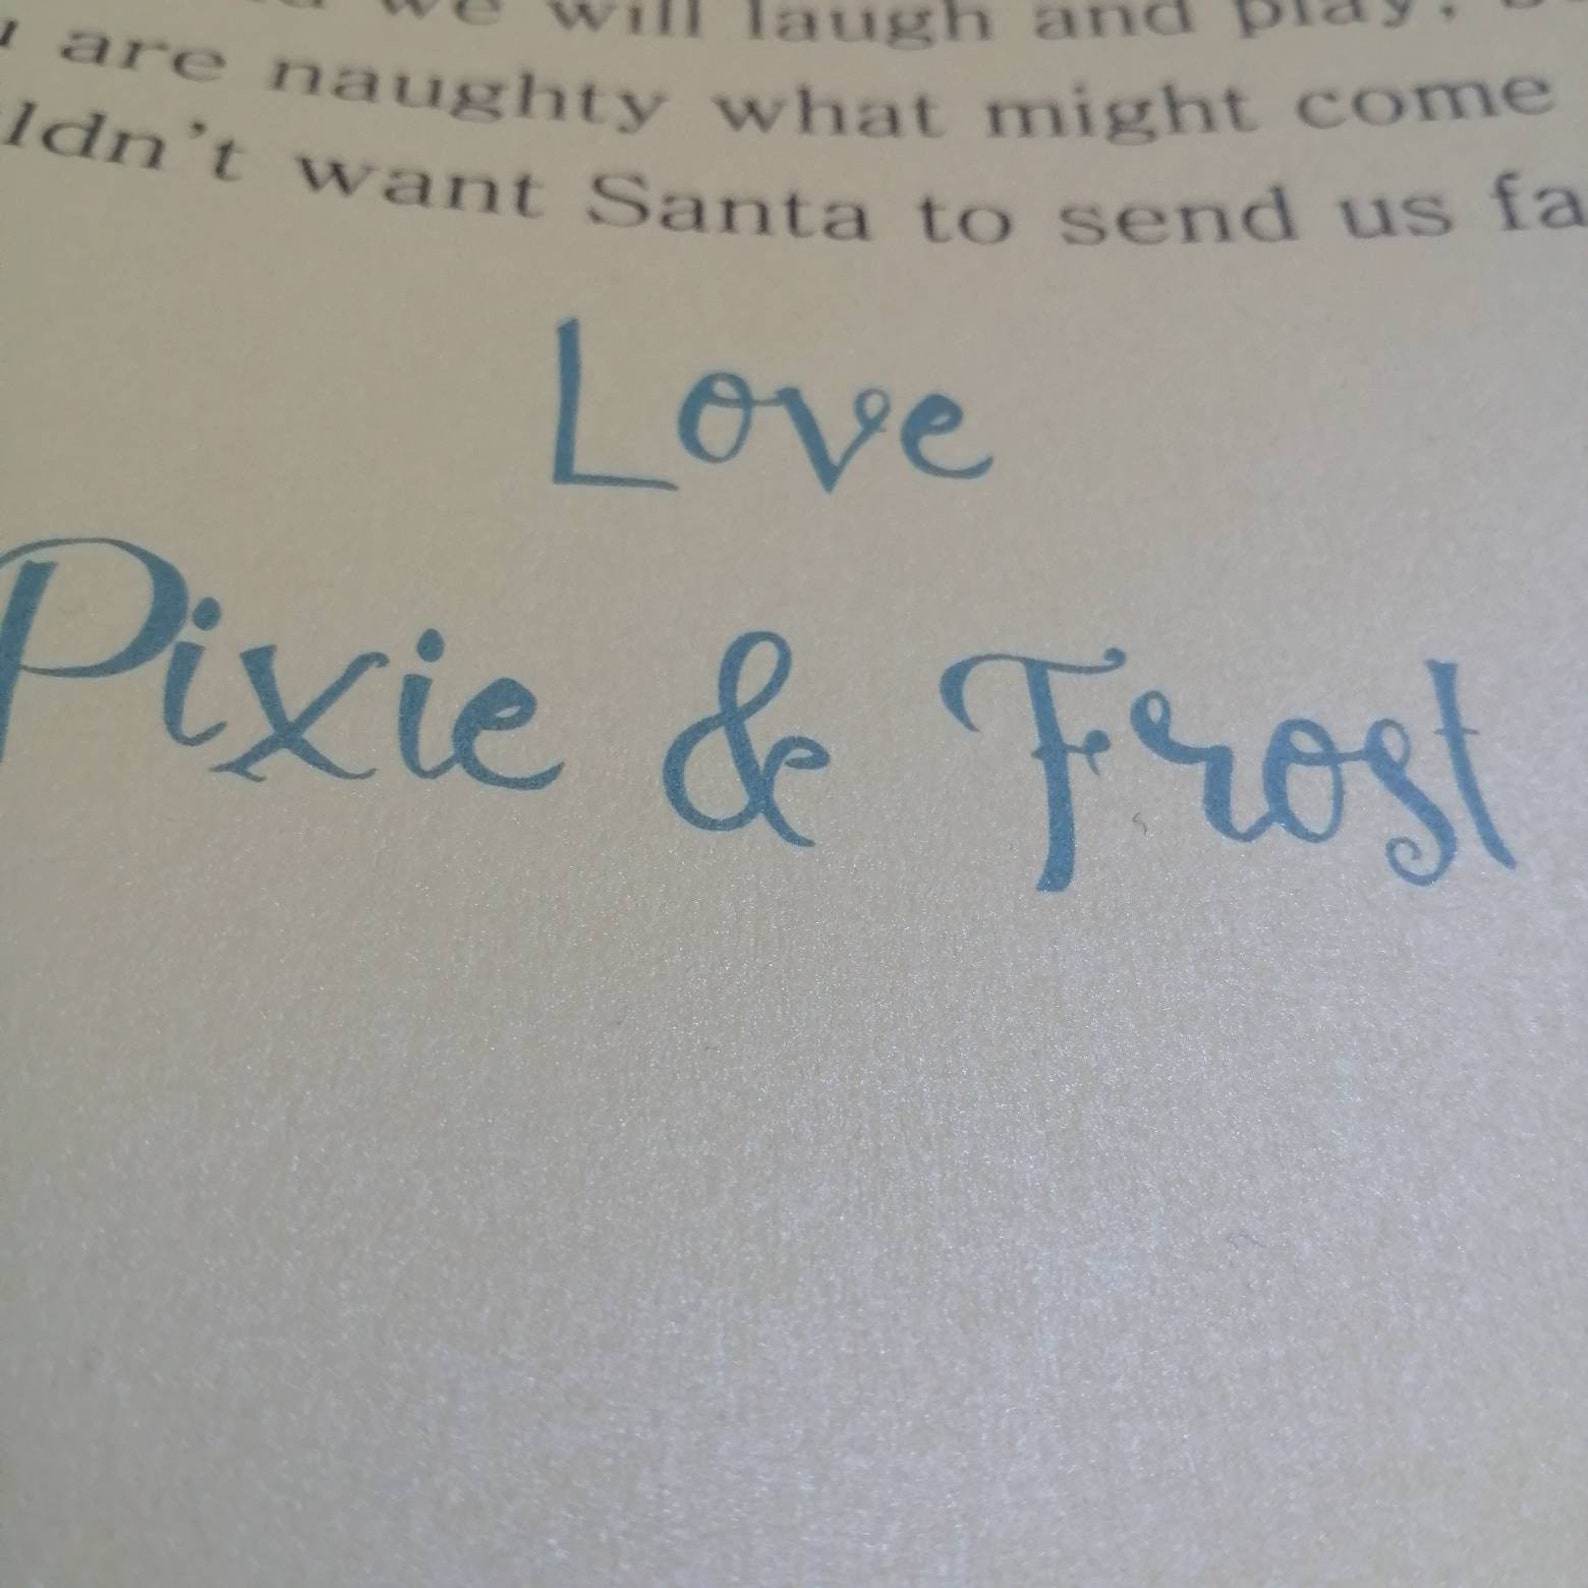 we will laugh and play,
are naughty what might come
want Santa to send us
Love
Pixie & Frost